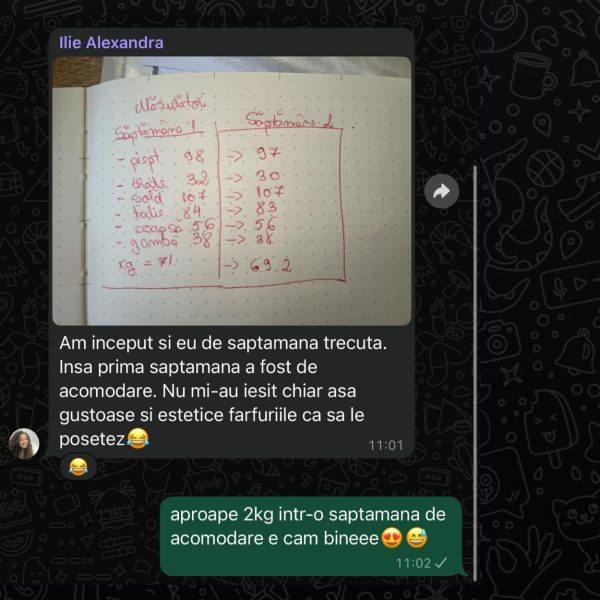 Ilie Alexandra
Măsurători
Săptămâna 1 Săptămâna 2
- piept 98 -> 97
- brațe 32 -> 30
- sold 107 -> 107
- talie 84 -> 83
- coapsă 56 -> 56
- gambă 38 -> 38
kg = 71 -> 69.2
Am inceput si eu de saptamana trecuta.
Insa prima saptamana a fost de
acomodare. Nu mi-au iesit chiar asa
gustoase si estetice farfuriile ca sa le
posetez😂
11:01
😂
aproape 2kg intr-o saptamana de
acomodare e cam bineee😍😅
11:02